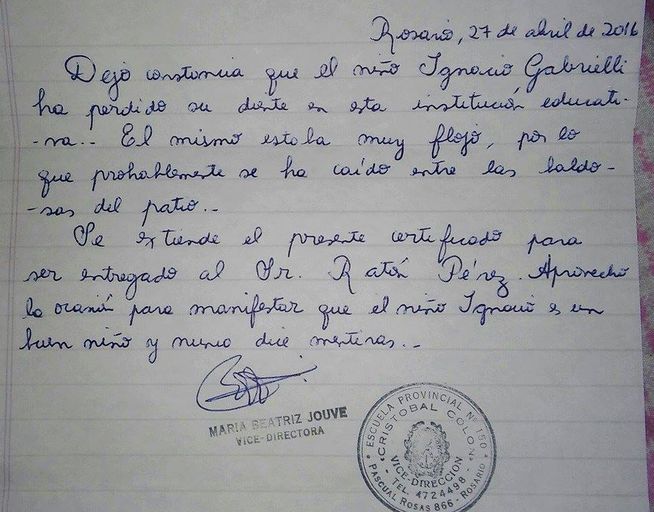 Rosario, 27 de abril de 2016
Dejo constancia que el niño Ignacio Gabrielli
ha perdido su diente en esta institución educati-
-va.. El mismo estaba muy flojo, por lo
que probablemente se ha caído entre las baldo-
-sas del patio..
Se extiende el presente certificado para
ser entregado al Sr. Ratón Pérez. Aprovecho
la ocasión para manifestar que el niño Ignacio es un
buen niño y nunca dice mentiras..
MARIA BEATRIZ JOUVE
VICE-DIRECTORA
ESCUELA PROVINCIAL Nº 150
"CRISTOBAL COLON"
VICE-DIRECCION
- TEL. 4724498 -
PASCUAL ROSAS 866 - ROSARIO